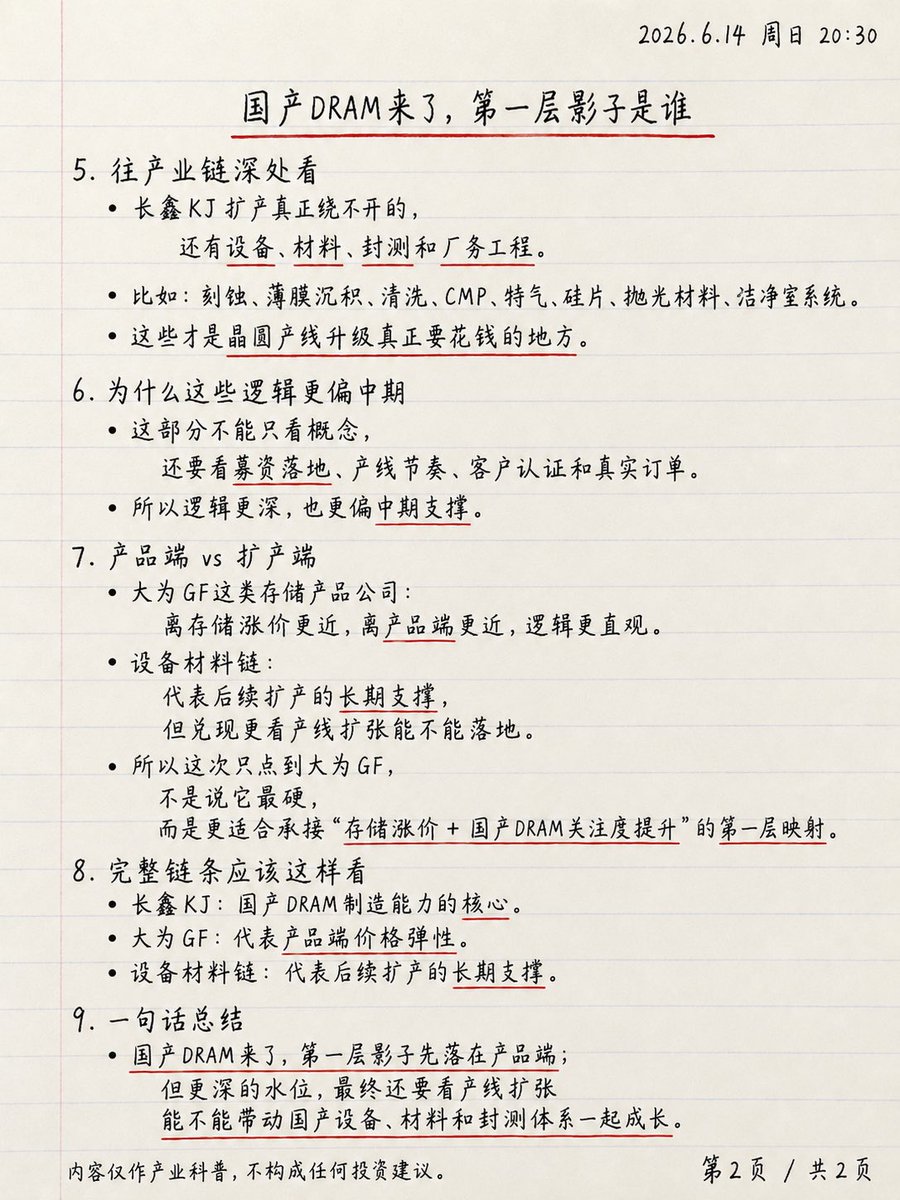 2026.6.14 周日 20:30
国产DRAM来了,第一层影子是谁
5. 往产业链深处看
• 长鑫KJ 扩产真正绕不开的,
还有设备、材料、封测和厂务工程。
• 比如:刻蚀、薄膜沉积、清洗、CMP、特气、硅片、抛光材料、洁净室系统。
• 这些才是晶圆产线升级真正要花钱的地方。
6. 为什么这些逻辑更偏中期
• 这部分不能只看概念,
还要看募资落地、产线节奏、客户认证和真实订单。
• 所以逻辑更深,也更偏中期支撑。
7. 产品端 vs 扩产端
• 大为GF这类存储产品公司:
离存储涨价更近,离产品端更近,逻辑更直观。
• 设备材料链:
代表后续扩产的长期支撑,
但兑现更看产线扩张能不能落地。
• 所以这次只点到大为GF,
不是说它最硬,
而是更适合承接“存储涨价 + 国产DRAM关注度提升”的第一层映射。
8. 完整链条应该这样看
• 长鑫KJ:国产DRAM制造能力的核心。
• 大为GF:代表产品端价格弹性。
• 设备材料链:代表后续扩产的长期支撑。
9. 一句话总结
• 国产DRAM来了,第一层影子先落在产品端;
但更深的水位,最终还要看产线扩张
能不能带动国产设备、材料和封测体系一起成长。
内容仅作产业科普,不构成任何投资建议。
第2页 / 共2页